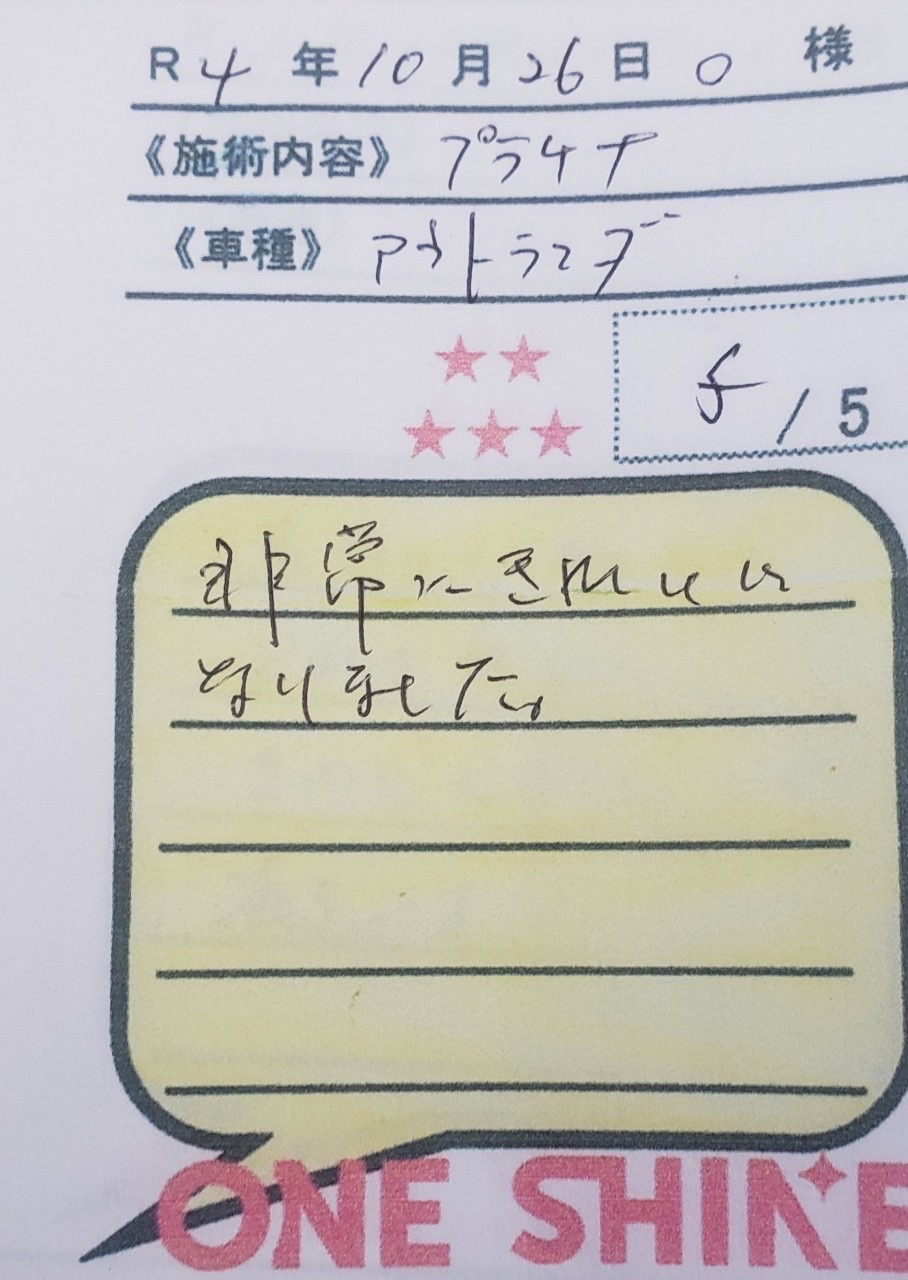 R4年10月26日 O 様
《施術内容》 プラチナ
《車種》 アウトランダー
5/5
非常にきれいに
なりました。
ONE SHINE